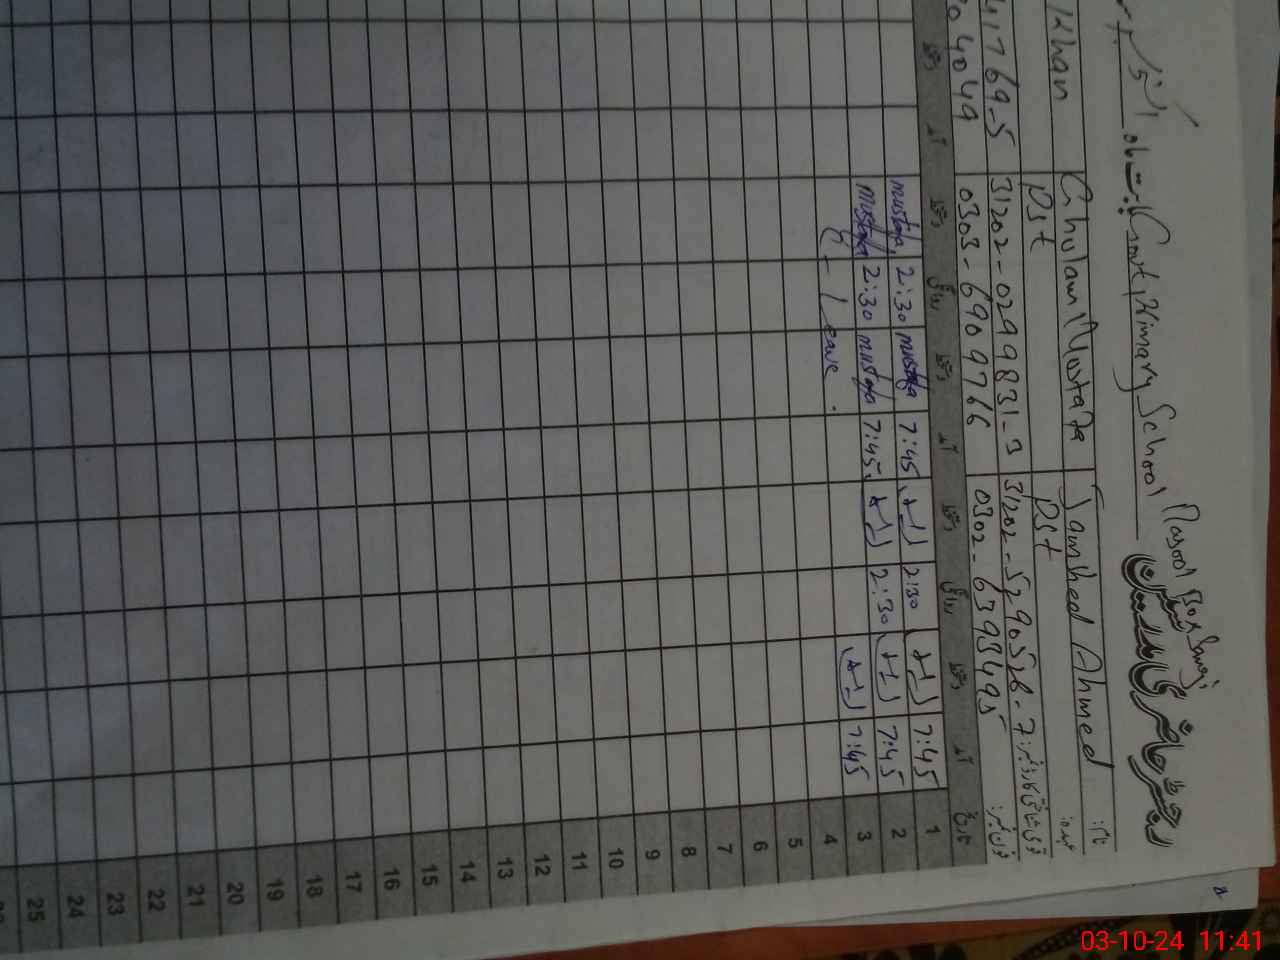 رجسٹر حاضری مدرسین
Masool Box
بابت ماہ Govt. Primary School
نام: Jamshed Ahmed Ghulam Mustafa Khan
عہدہ: Pst Pst
قومی شناختی کارڈ نمبر: 31202-5290528-7 31202-0299831-3 41769-5
فون نمبر: 0302-6393495 0303-6909766 04049
تاریخ آمد دستخط روانگی دستخط آمد دستخط روانگی دستخط آمد دستخط
1 7:45 2:30 7:45 mustafa 2:30 mustafa
2 7:45 2:30 7:45 mustafa 2:30 mustafa
3 7:45 Leave
4
5
6
7
8
9
10
11
12
13
14
15
16
17
18
19
20
21
22
23
24
25
03-10-24 11:41